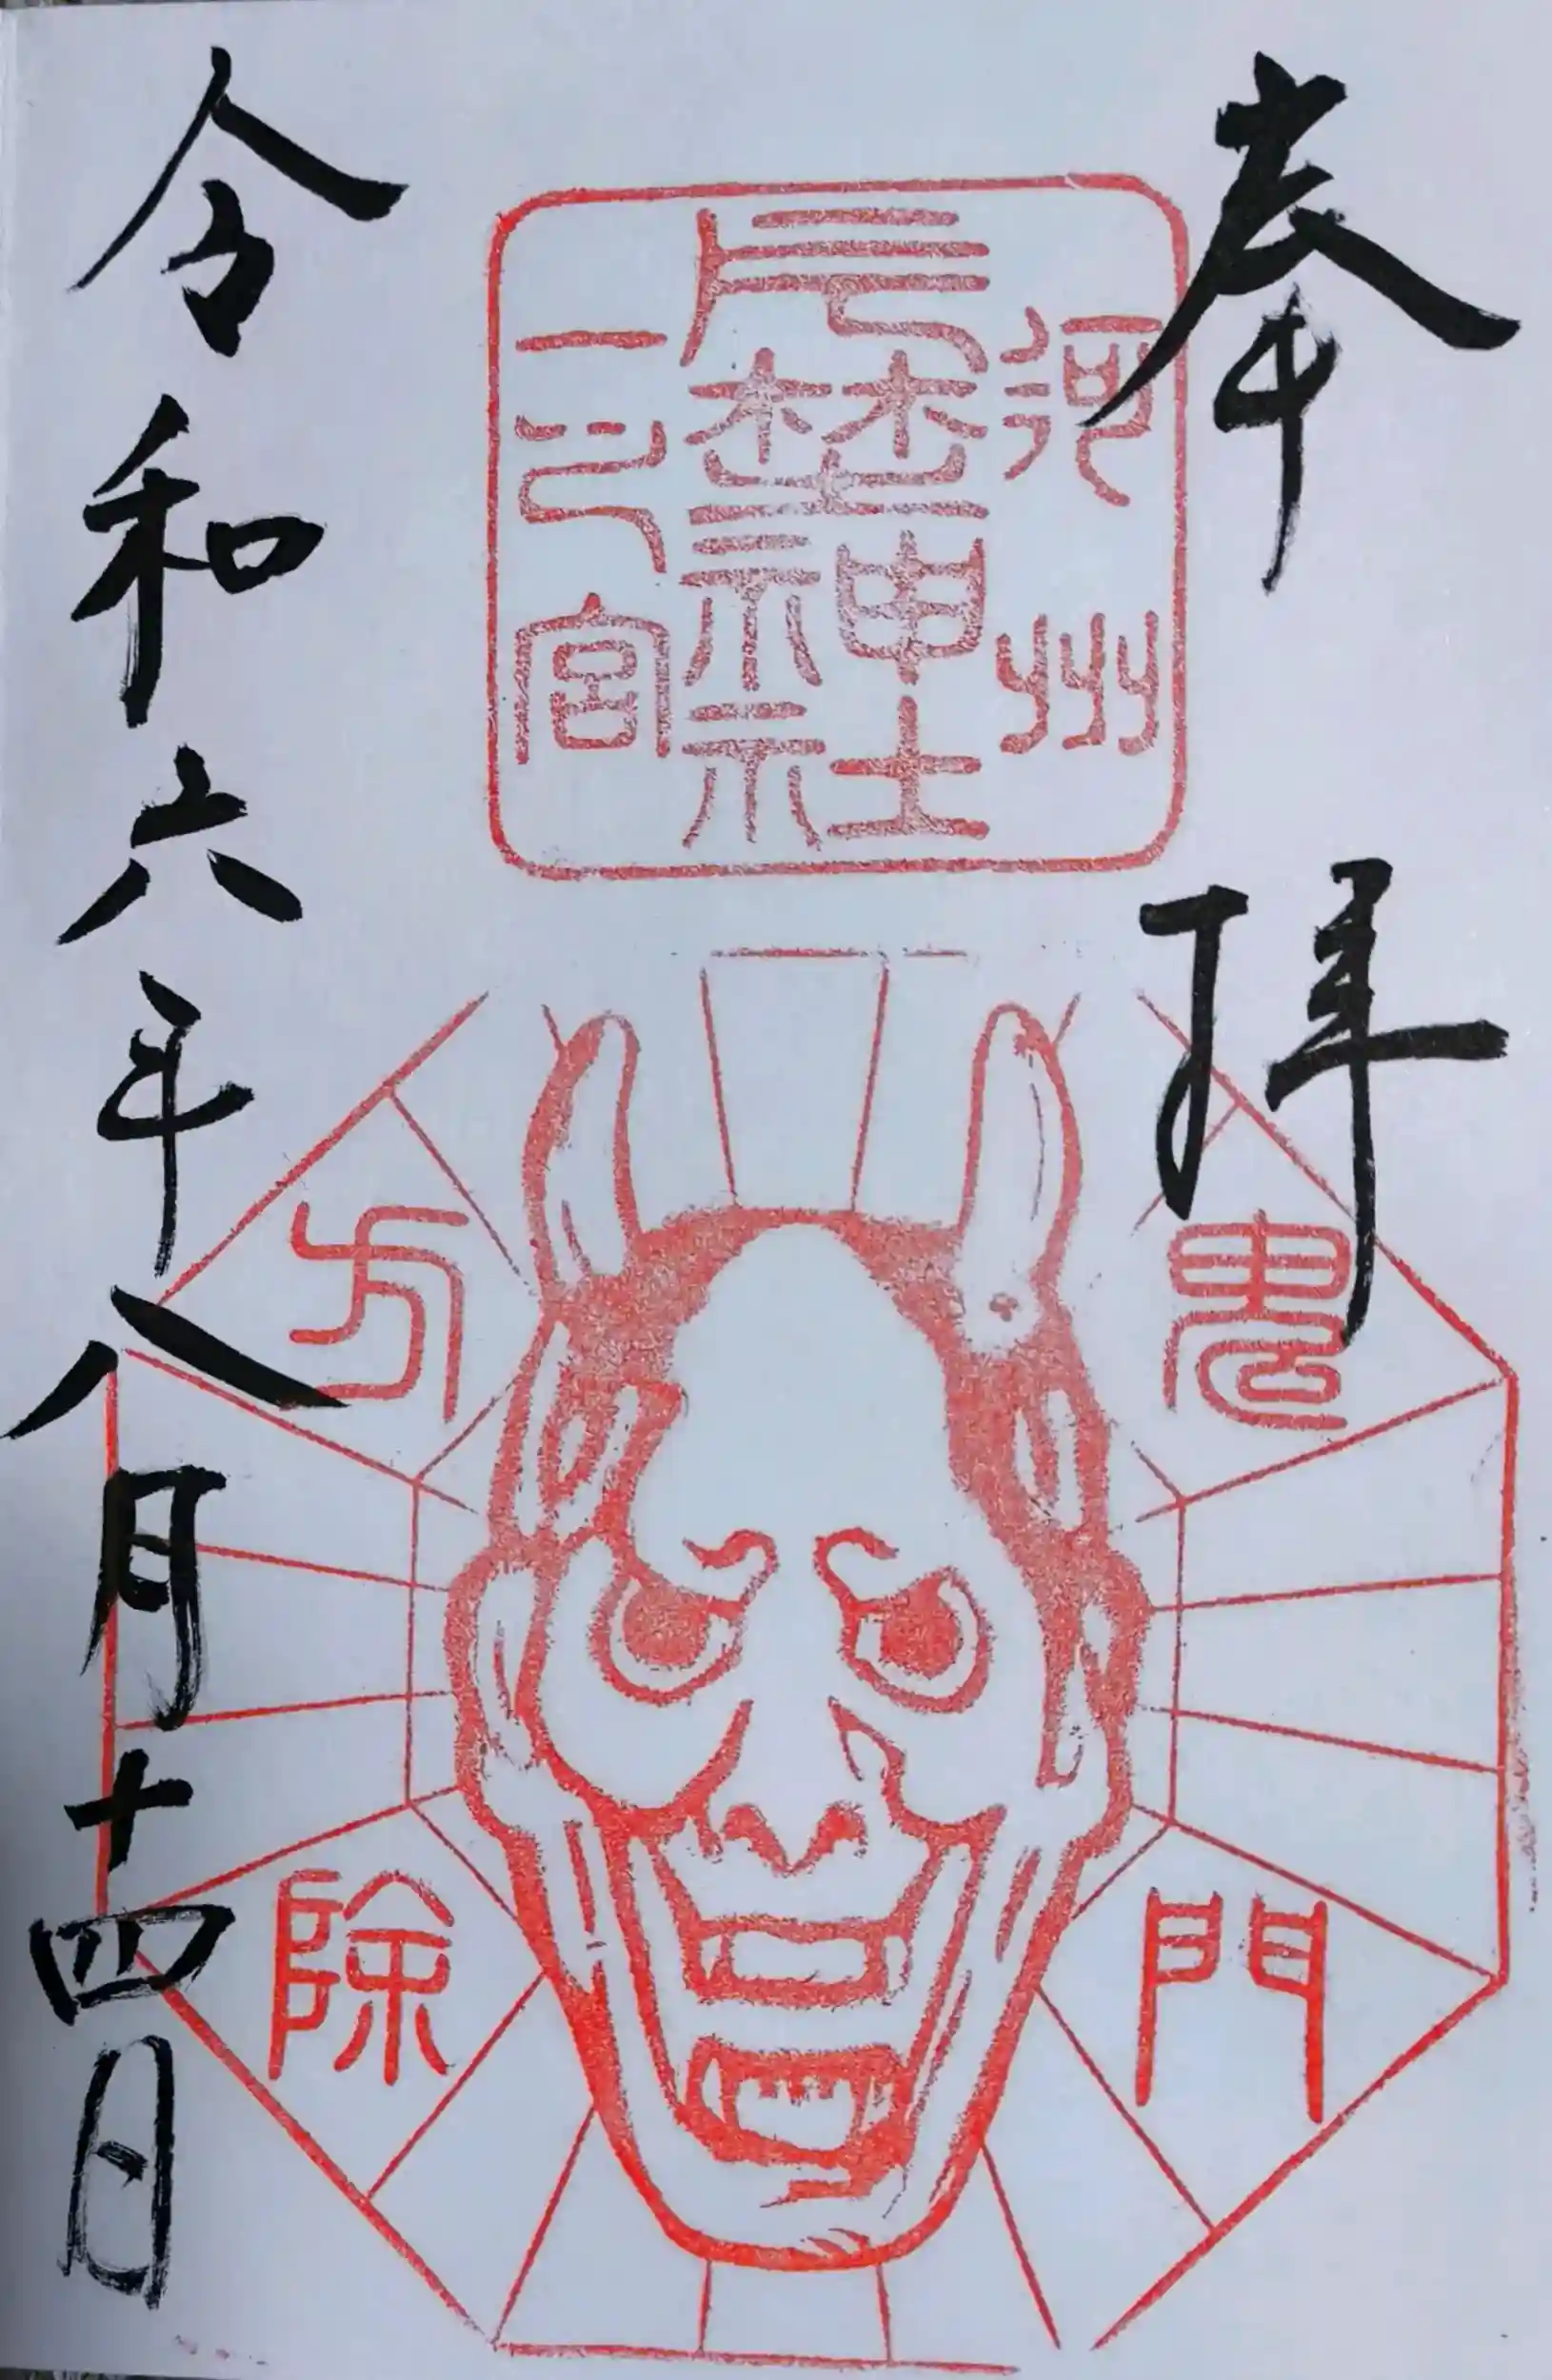 奉拝
河州
片埜神社
一之宮
鬼門
方除
令和六年八月十四日